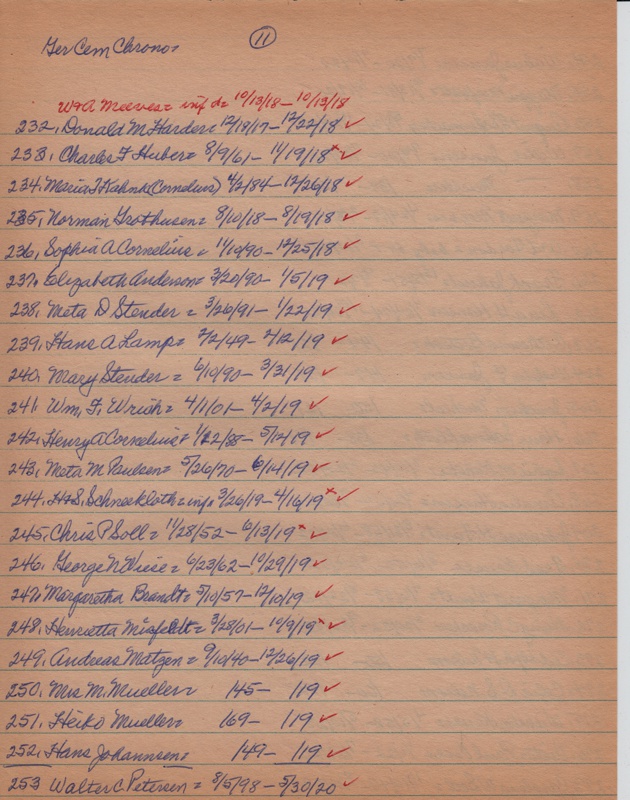 Ger Cem Chrono= 11
W+A Meeves= inf d= 10/13/18-10/13/18
232. Donald M Harder= 12/18/17-12/22/18 ✓
233. Charles F Huber= 8/9/61-11/19/18 x ✓
234. Maria F Kahnk(Cornelius) 4/2/84-12/26/18 ✓
235. Norman Grothusen= 8/10/18-8/19/18 ✓
236. Sophia A Cornelius= 11/19/90-12/25/18 ✓
237. Elizabeth Anderson= 3/20/90-1/5/19 ✓
238. Meta D Stender= 3/26/91-1/22/19 ✓
239. Hans A Lamp= 2/2/49-2/12/19 ✓
240. Mary Stender= 6/10/90-3/31/19 ✓
241. Wm. F. Wriah= 4/1/01-4/2/19 ✓
242. Henry A Cornelius= 1/22/88-5/12/19 ✓
243. Meta M Paulsen= 5/26/70-6/14/19 ✓
244. H+S. Schneekloth= inf= 3/26/19-4/16/19 x ✓
245. Chris P Soll= 11/28/52-6/13/19 x ✓
246. George N Wiese= 6/23/62-10/29/19 ✓
247. Margaretha Brandt= 5/10/57-12/10/19 ✓
248. Henrietta Misfeldt= 3/28/01-10/9/19 x ✓
249. Andreas Matzen= 9/10/40-12/26/19 ✓
250. Mrs M. Mueller= 145- 119 ✓
251. Heiko Mueller= 169- 119 ✓
252. Hans Johannsen= 149- 119 ✓
253 Walter C. Petersen= 8/5/98-5/30/20 ✓